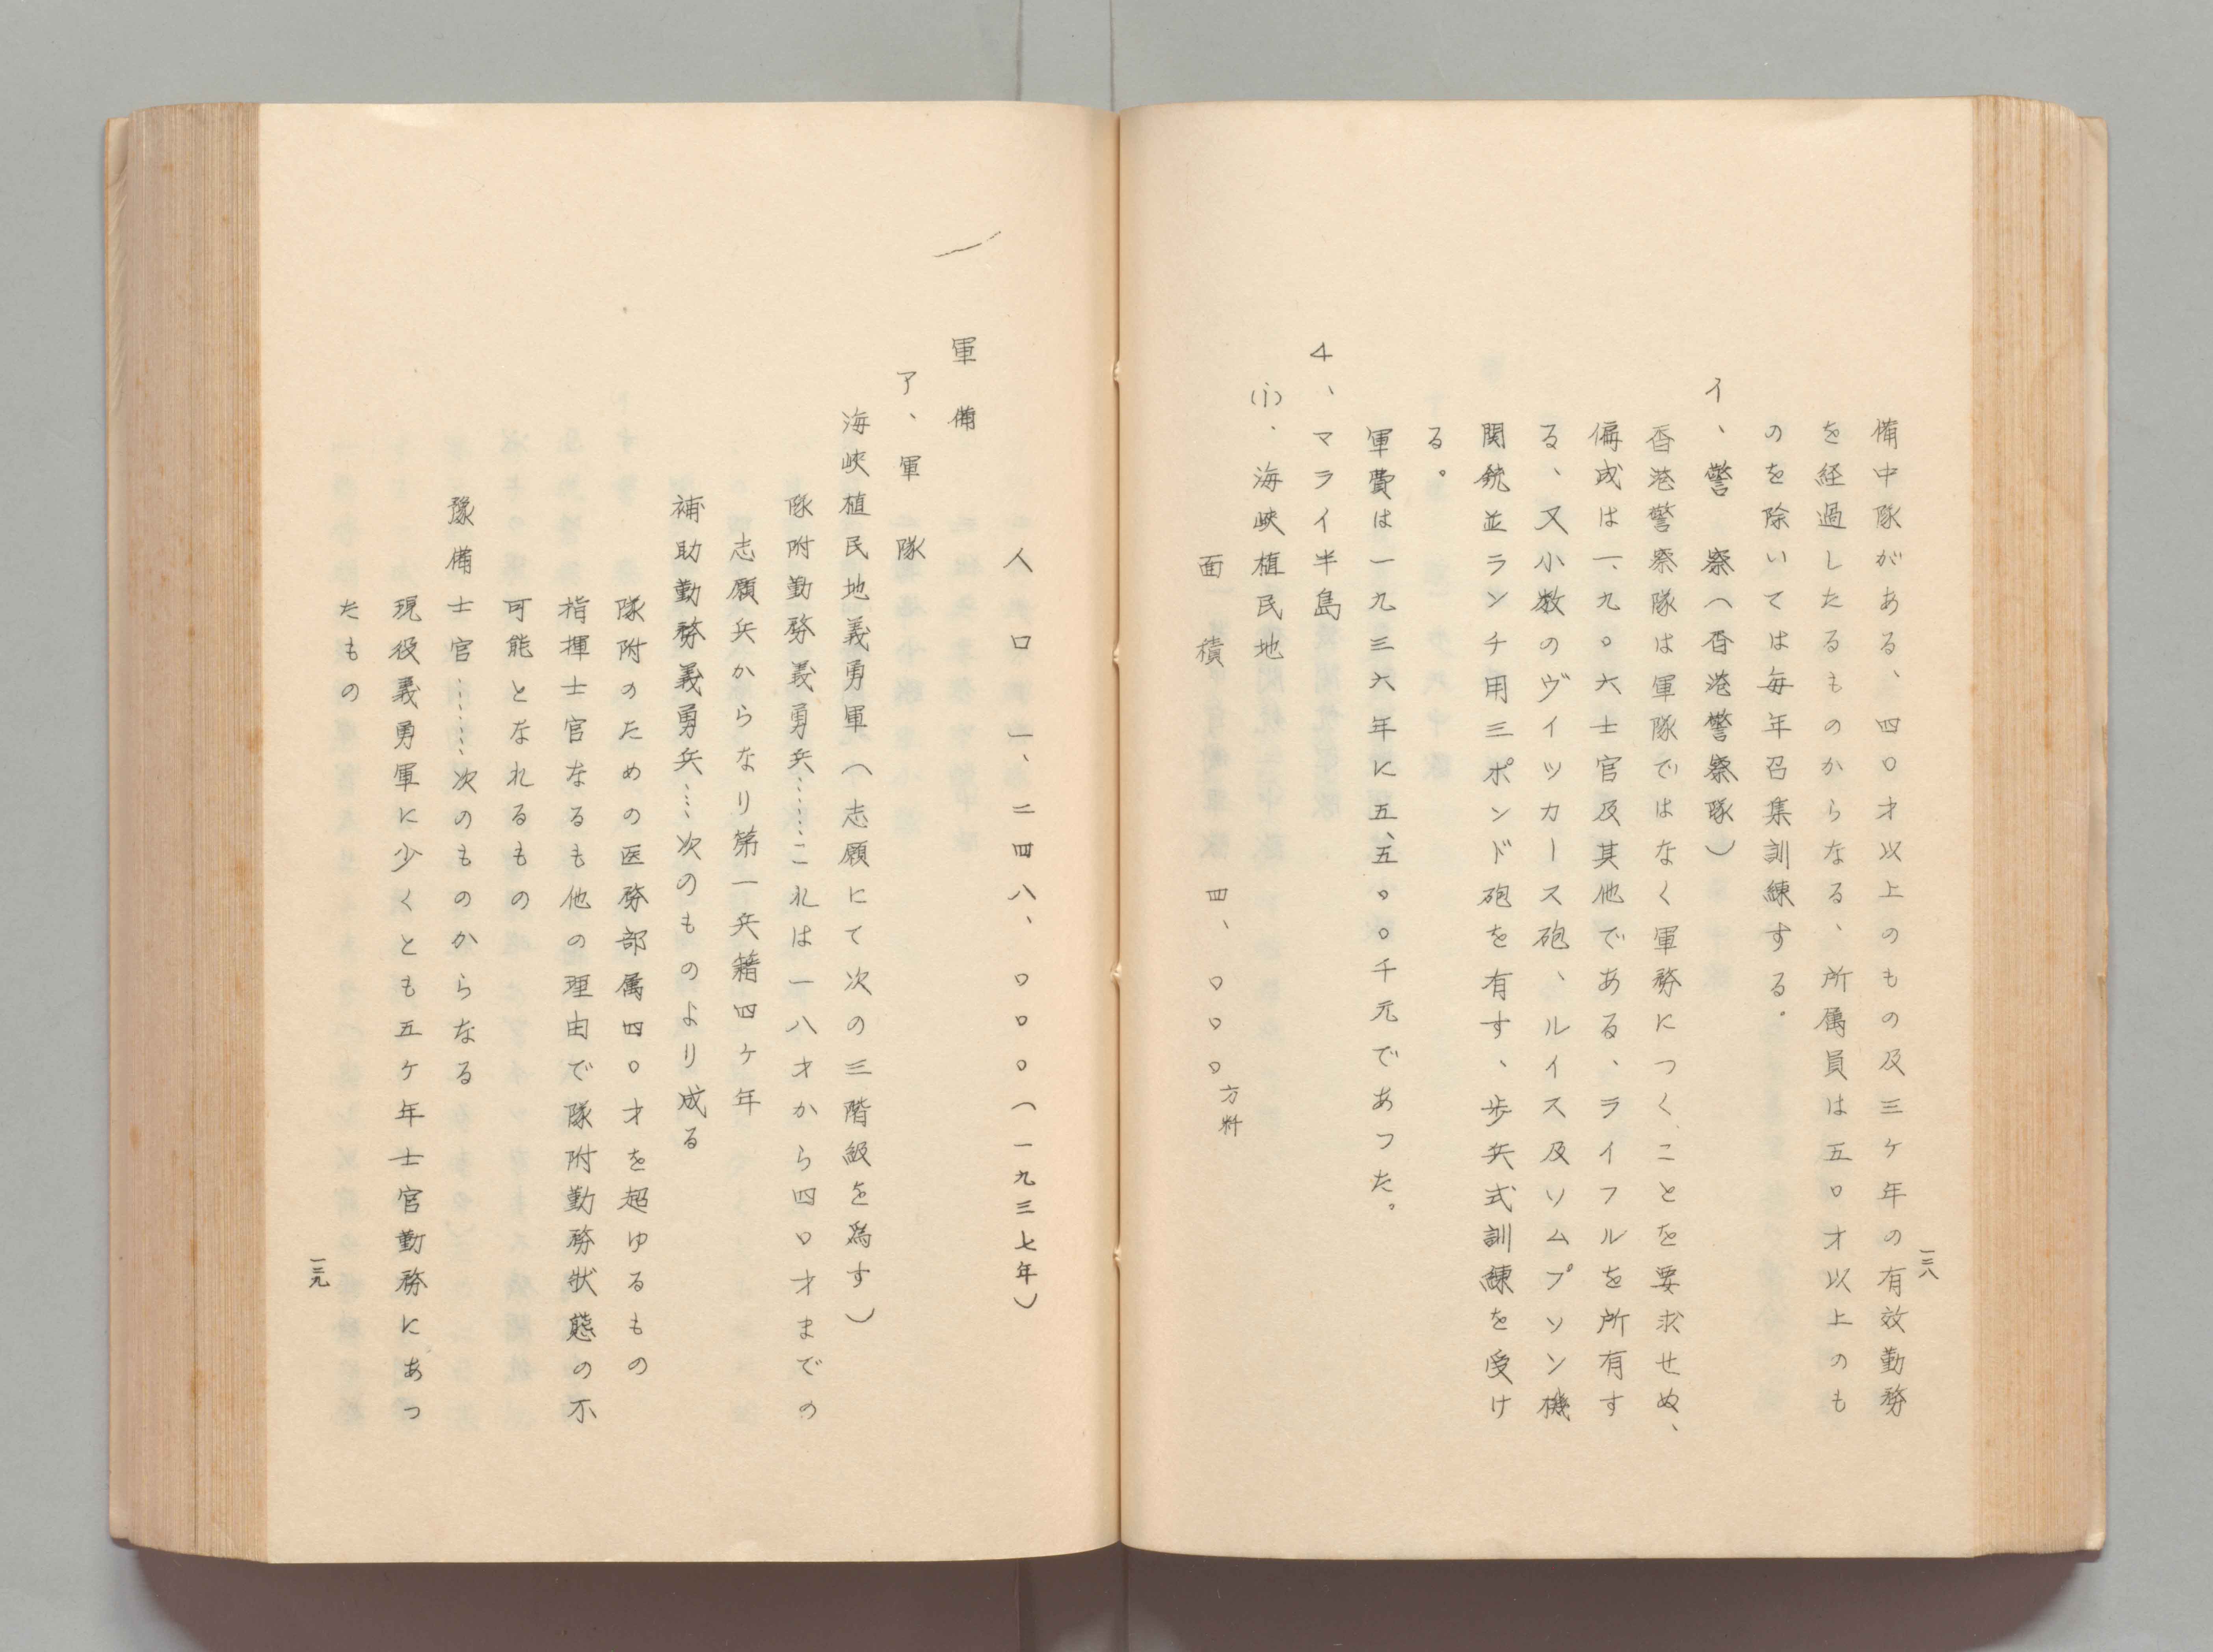 一三八
備中隊がある、四〇才以上のもの及三ケ年の有效勤務
を経過したるものからなる、所属員は五〇才以上のも
のを除いては毎年召集訓練する。
イ、警察（香港警察隊）
香港警察隊は軍隊ではなく軍務につくことを要求せぬ、
偏成は一、九〇六士官及其他である、ライフルを所有す
る、又小数のヴイツカース砲、ルイス及ソムプソン機
関銃並ランチ用三ポンド砲を有す、歩兵式訓練を受け
る。
軍費は一九三六年に五、五〇〇千元であつた。
4、マライ半島
(i)．海峡植民地
面積　四、〇〇〇方粁
人口　一、二四八、〇〇〇（一九三七年）
軍備
ア、軍隊
海峡植民地義勇軍（志願にて次の三階級を為す）
隊附勤務義勇兵……これは一八才から四〇才までの
志願兵からなり第一兵籍四ケ年
補助勤務義勇兵…次のものより成る
隊附のための医務部属四〇才を超ゆるもの
指揮士官なるも他の理由で隊附勤務状態の不
可能となれるもの
豫備士官……次のものからなる
現役義勇軍に少くとも五ケ年士官勤務にあつ
たもの
一三九